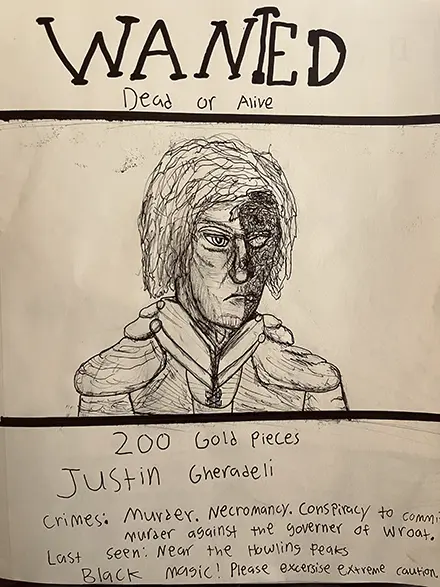 WANTED
Dead or Alive
200 Gold Pieces
Justin Gheradeli
Crimes: Murder. Necromancy. Conspiracy to commit
murder against the governer of Wroat.
Last seen: Near the Howling Peaks
Black magic! Please excersise extreme caution